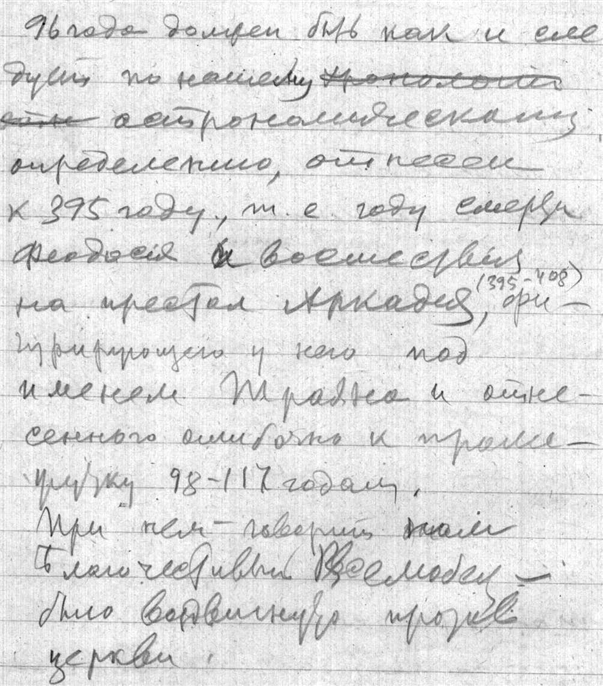 96 года должен быть как и сле
дует по нашему хронологи
астрономическому
определению, отнесен
к 395 году, т. е. году смерти
Феодосия и восшествия
на престол Аркадия, (395-408) фи-
гурирующего у него под
именем Траяна и отне-
сенного ошибочно к проме-
жутку 98-117 годам.
При нем - говорит нам
благочестивый -
было воздвигнуто против
церкви.